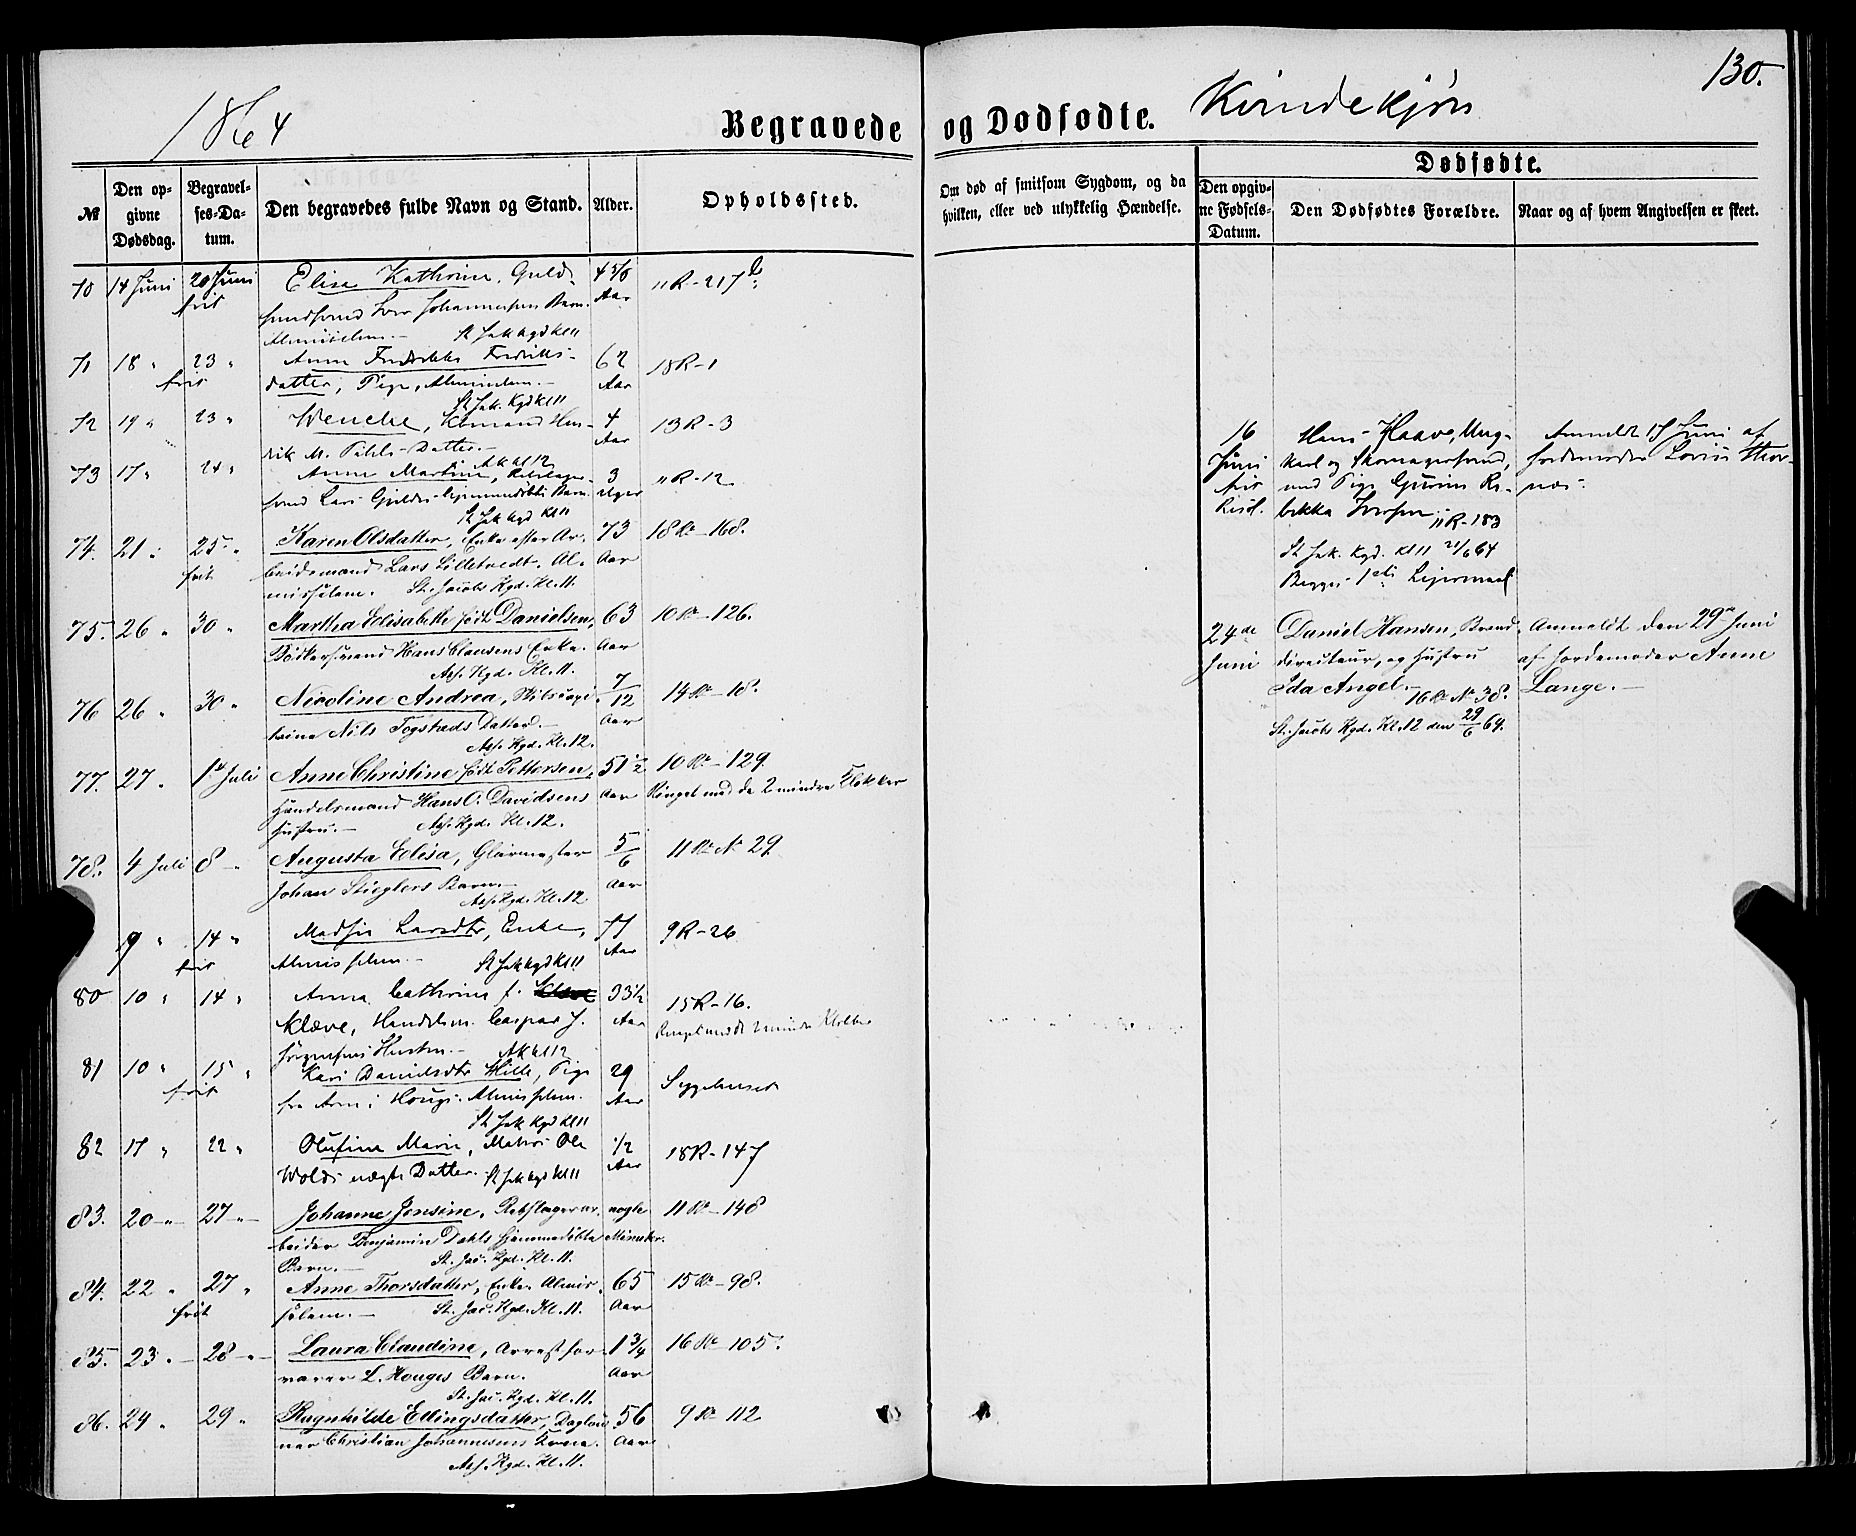 130.
1864
Begravede og Dødfødte. Kvindekjøn
№
Den opgivne Dødsdag.
Begravelses-Datum.
Den begravedes fulde Navn og Stand.
Alder.
Opholdssted.
Om død af smitsom Sygdom, og da hvilken, eller ved ulykkelig Hændelse.
Dødfødte.
Den opgivne Fødsels-Datum.
Den Dødfødtes Forældre.
Naar og af hvem Angivelsen er skeet.
70 14 Juni 20 Juni Elisa Kathrine, Guld-
frit Aar 11 R - 217
Johannesen Barn
St Jak kgd Kl 11
71 18 " 23 " Anna Fredrikke Fredriks- 62 18 R - 1
frit datter, Pige, Almindem. - Aar
St Jak. Kgd Kl 11
72 19 " 23 " Wencke, Kjømand Hen- 4 13 R - 3
rik M. Pihls Datter. - Aar
A k kl 12
73 17 " 24 " Anne Martine, 3 11 R - 12
svend Lars Barn Uger
St Jak kgd Kl 11
74. 21 " 25 " Karen Olsdatter, Enke efter Ar- 73 18 R - 168.
frit beidsmand Lars Lilletvedt. Al- Aar
missелem. St. Jacobs Kgd. Kl. 11.
75. 26 " 30 " Martha Elisabeth født Danielsen, 63 10 R - 126.
Bødkersvend Hans Clausens Enke. Aar
Ass. Kgd. Kl. 11.
76 26 " 30 " Nicoline Andrea, 7/12 14 R - 18.
Nils Togstads Datter. - Aar
Ass. Kgd. Kl. 12.
77. 27 " 1ste Juli Anne Christine født Pettersen, 51 1/2 10 R - 129.
Handelsmand Hans O. Davidsens Aar Ringet med de 2 mindre Klokker
Hustru. - Ass. Kgd. Kl. 12.
78. 4 Juli 8 - Augusta Elisa, Glarmester 5/6 11 R № 29
Johan Stieglers Barn. - Aar
Ass. Kgd. Kl. 12
9 " 14 " Larsdtr, Enke, 77 9 R - 26
frit Almisselem. - Aar
St Jak kgd Kl 11
80 10 " 14 " Anna Cathrine f. 33 1/2 15 R - 16.
Klæve, Handelsm. Caspar J. Aar Ringet med de 2 mindre Klokker
Jørgensens Hustru. - A k kl 12
81 10 " 15 " Kari Danielsdtr Hille, Pige 29 Sygehuset
frit Almisselem. Aar
St Jak Kgd Kl 11
82 17 " 22 " Olufine Marie, Matros Ole 1/2 18 R - 147
Wolds uægte Datter. St Jak kgd Kl 11 Aar
83. 20 - " 27 " - Johanne Jensine, Rebslagerar- nogle 11 R - 148
beider Benjamin Dahls hjemmedøbte Maaneder.
Barn. - St. Jac. Kgd. Kl. 11.
84. 22 " 27 " Anne Thorsdatter, Enke, Almis- 65 15 R - 98.
frit selem. - St. Jac. Kgd. Kl. 11. Aar
85. 23 " - 28 " - Laura Claudine, Arrestfor- 1 3/4 16 R - 105.
varer L. Houges Barn. Aar
St. Jac. Kgd. Kl. 11.
86. 24 " 29 " Ragnhilde Ellingsdatter, Dagløn- 56 9 R - 112
ner Christian Johannesens Kone. Aar
Ass. Kgd. Kl. 11.
16 Hans Haave, Ung- Anmeldt 17 Juni af
Juni karl og Skomagersvend, Jordemoder Thor-
frit med Pige Gurine Re- næs.
bekka Iversen. 11 R - 183
St Jak. Kgd. Kl 11 21/6 64
Begges 1ste Lejermaal
24de Daniel Hansen, Brand- Anmeldt den 29de Juni
Juni directeur, og Hustru af Jordemoder Anne
Ida Angel. - 16 R № 38. Lange. -
St. Jacobs Kgd. Kl. 12 den 29/6 64.